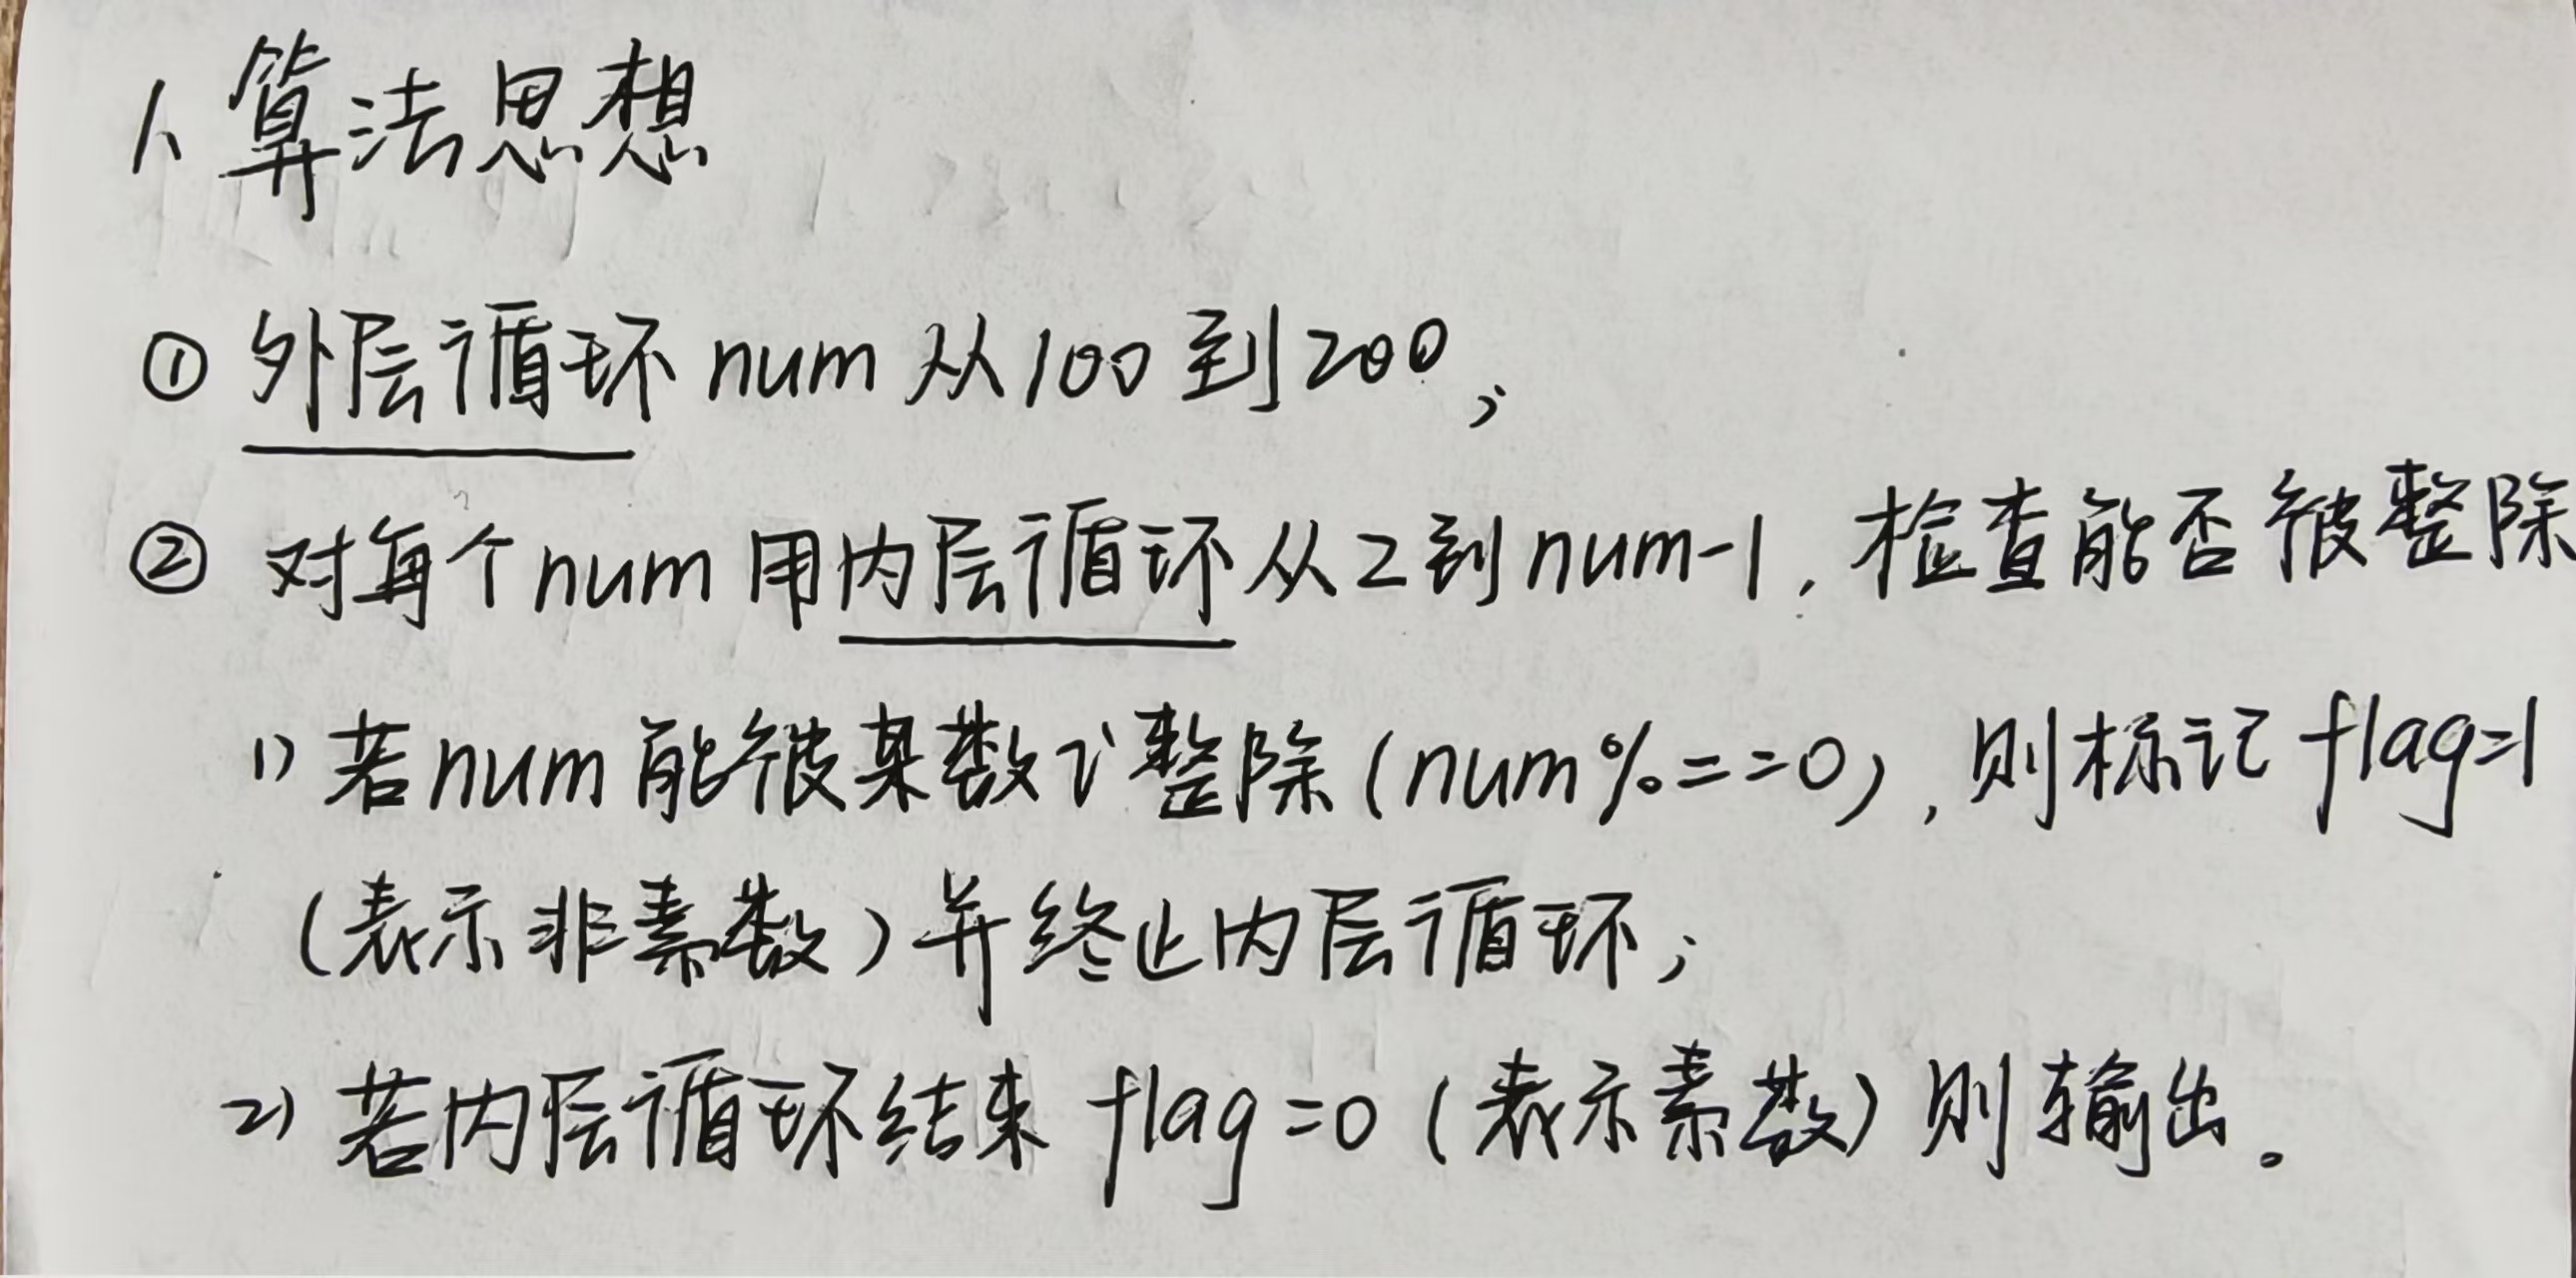 1、算法思想
① 外层循环 num 从100到200；
② 对每个num用内层循环从2到num-1，检查能否被整除
1) 若num能被某数i整除(num%==0)，则标记flag=1
(表示非素数)并终止内层循环；
2) 若内层循环结束 flag=0 (表示素数) 则输出。